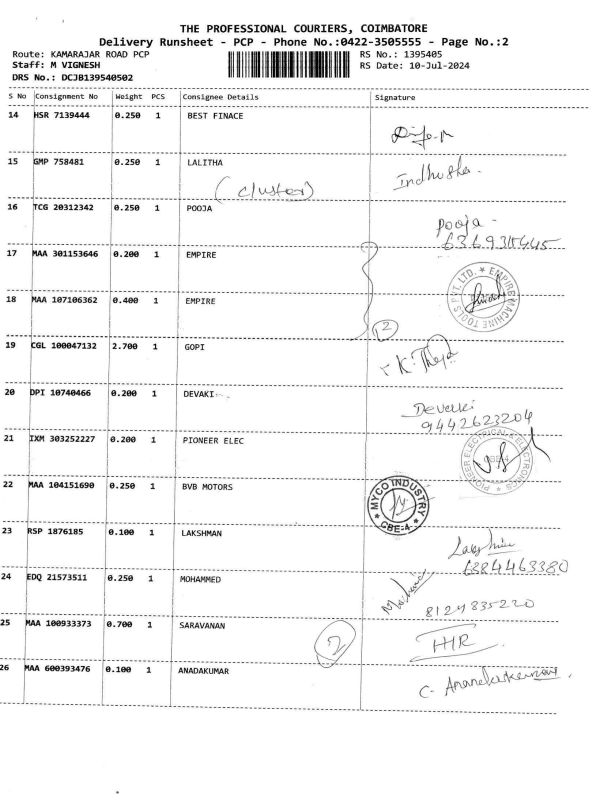 THE PROFESSIONAL COURIERS, COIMBATORE
Delivery Runsheet - PCP - Phone No.:0422-3505555 - Page No.:2
Route: KAMARAJAR ROAD PCP RS No.: 1395405
Staff: M VIGNESH RS Date: 10-Jul-2024
DRS No.: DCJB139540502
S No Consignment No Weight PCS Consignee Details Signature
14 HSR 7139444 0.250 1 BEST FINACE
15 GMP 758481 0.250 1 LALITHA
(cluster) Indhusha.
16 TCG 20312342 0.250 1 POOJA
Pooja -
17 MAA 301153646 0.200 1 EMPIRE
EMPIRE MACHINE TOOLS PVT.LTD.
18 MAA 107106362 0.400 1 EMPIRE
2
19 CGL 100047132 2.700 1 GOPI
20 DPI 10740466 0.200 1 DEVAKI
Devaki
9442623204
21 IXM 303252227 0.200 1 PIONEER ELEC
PIONEER ELECTRICAL & ELECTRONICS
22 MAA 104151690 0.250 1 BVB MOTORS
MYCO INDUSTRY CBE-4
23 RSP 1876185 0.100 1 LAKSHMAN
6384463380
24 EDQ 21573511 0.250 1 MOHAMMED
8124835220
25 MAA 100933373 0.700 1 SARAVANAN
2
26 MAA 600393476 0.100 1 ANADAKUMAR
C. Anandakumar.